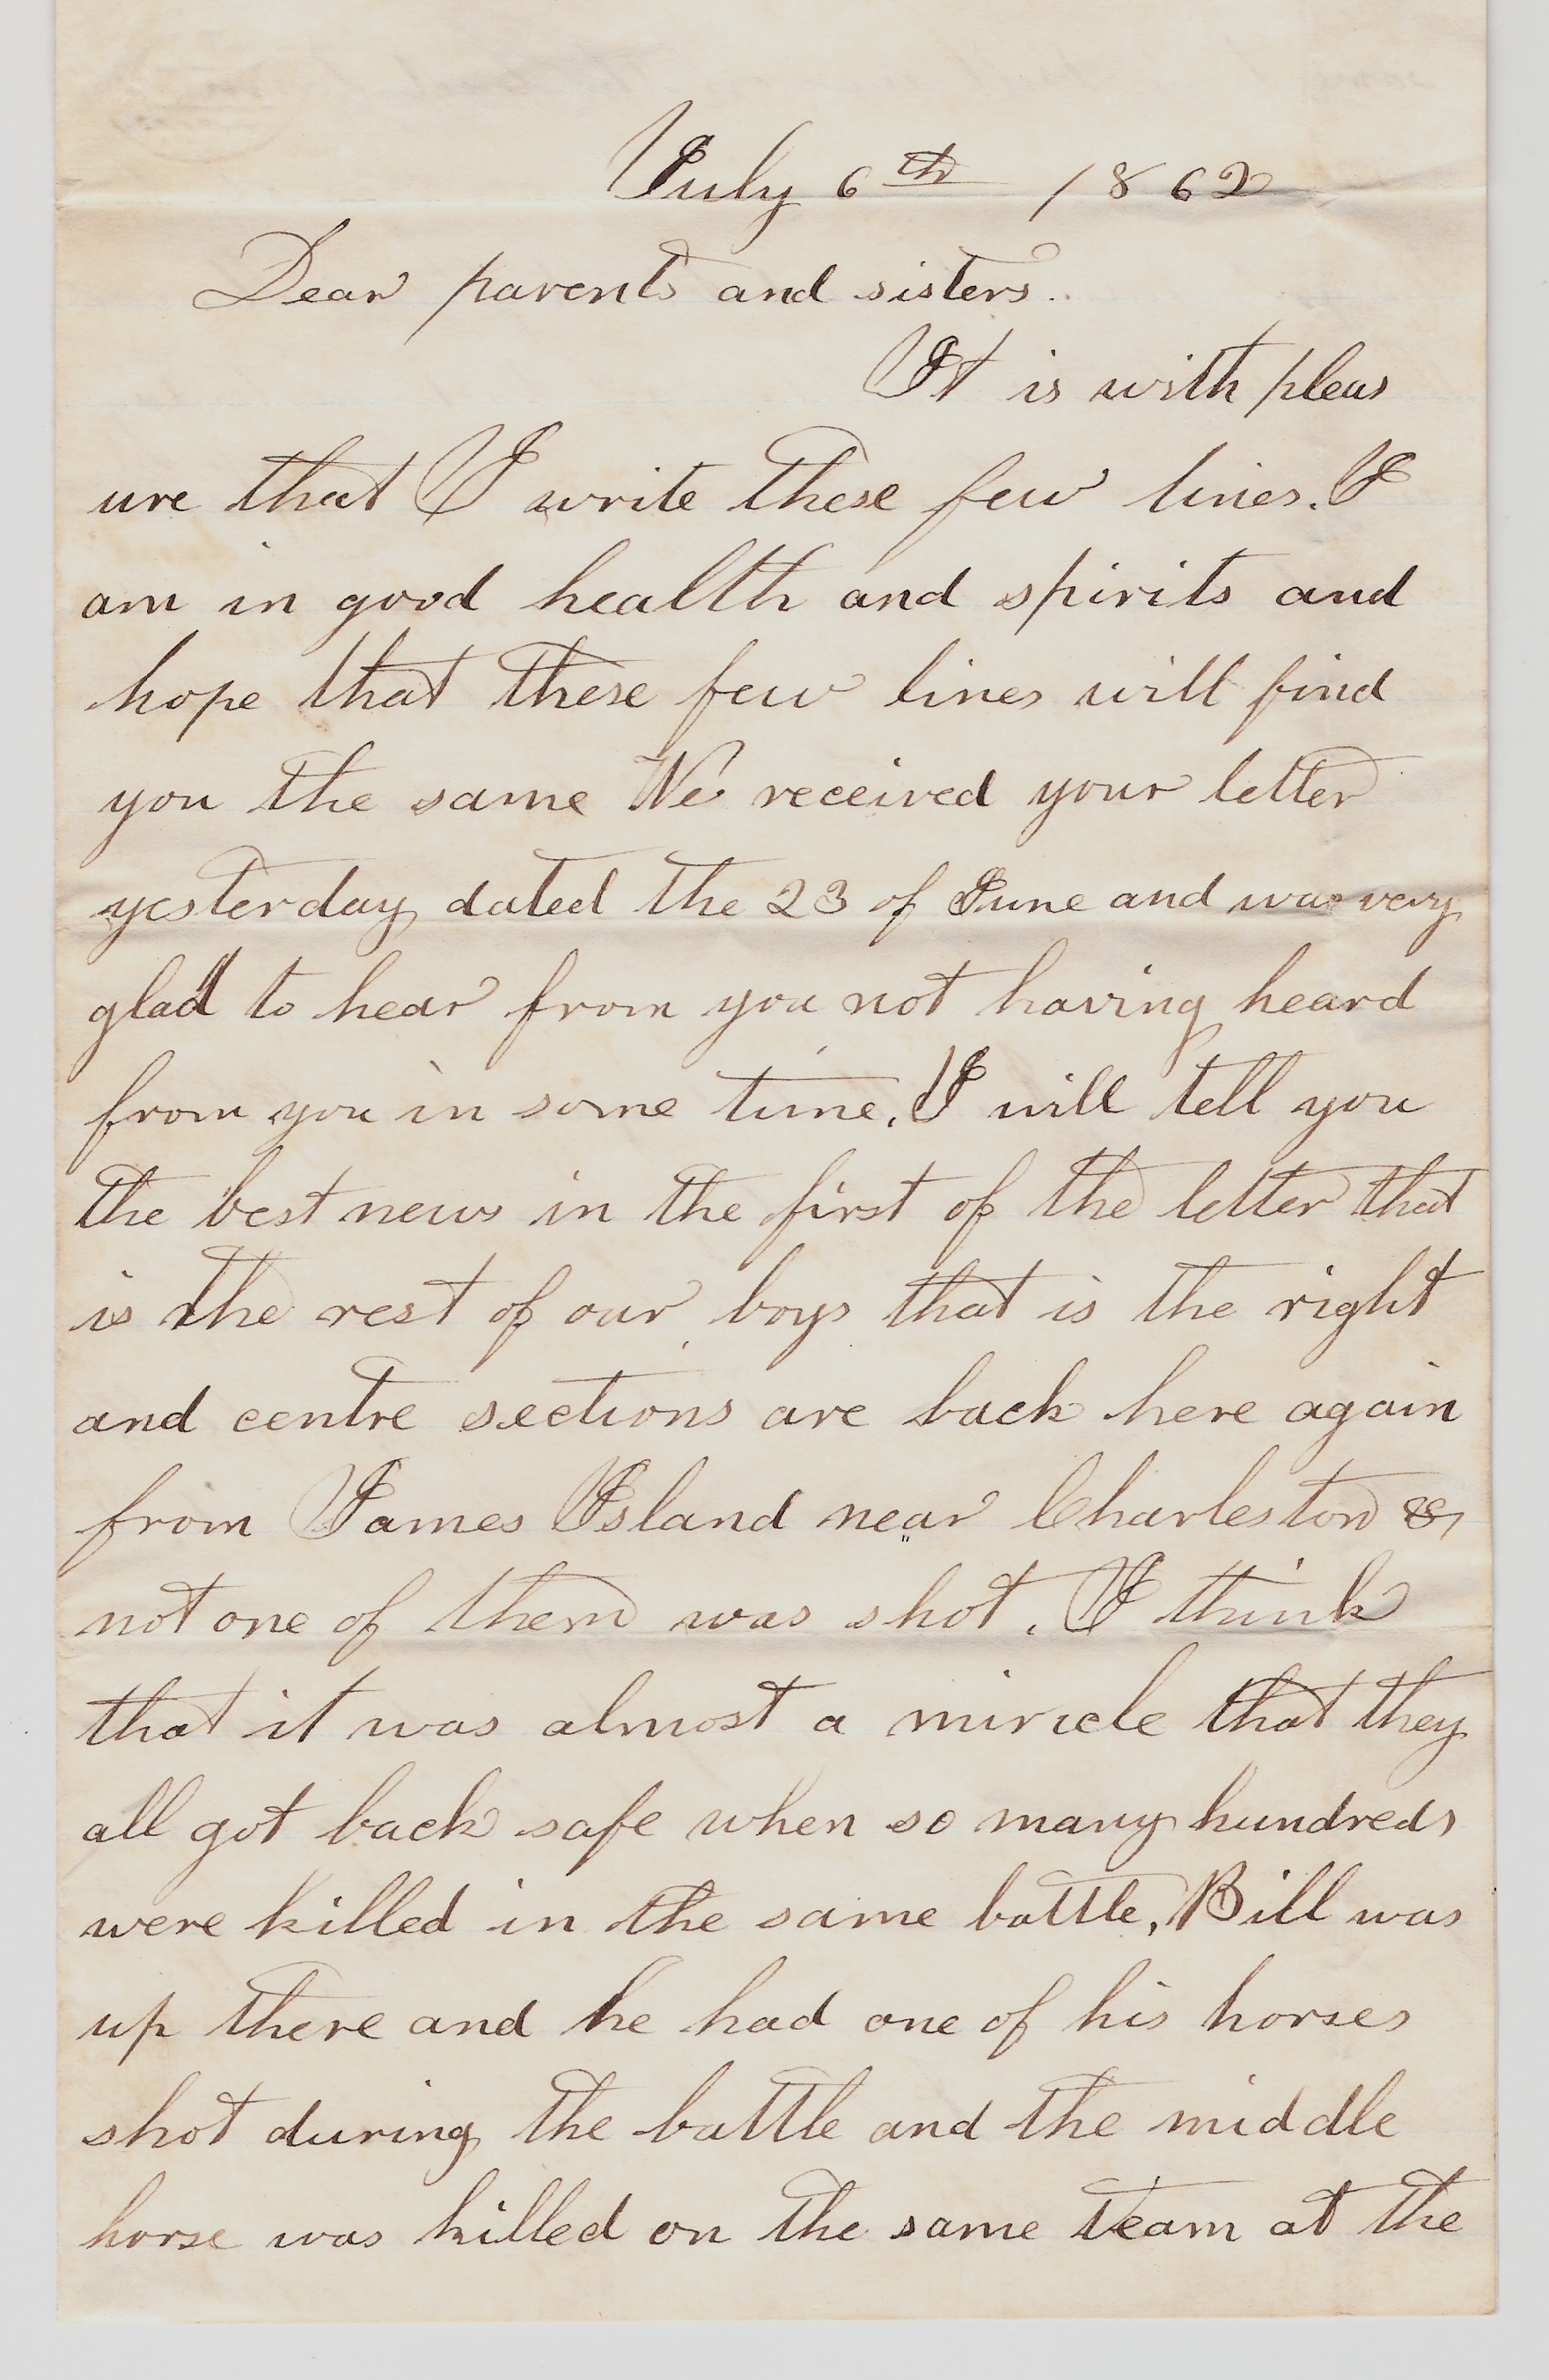 July 6th 1862
Dear parents and sisters.
It is with pleas
ure that I write these few lines. I
am in good health and spirits and
hope that these few lines will find
you the same We received your letter
yesterday dated the 23 of June and was very
glad to hear from you not having heard
from you in some time. I will tell you
the best news in the first of the letter that
is the rest of our boys that is the right
and centre sections are back here again
from James Island near Charleston &
not one of them was shot. I think
that it was almost a miricle that they
all got back safe when so many hundreds
were killed in the same battle, Bill was
up there and he had one of his horses
shot during the battle and the middle
horse was killed on the same team at the